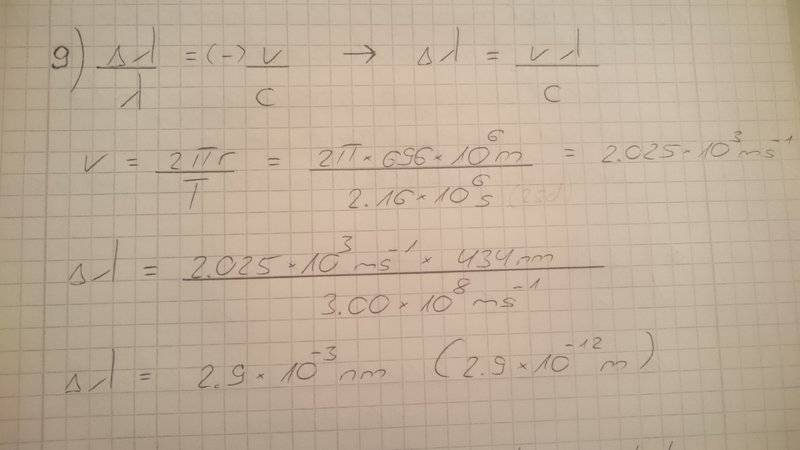 9) Δλ/λ = (-) v/c → Δλ = vλ/c
v = 2πr/T = 2π × 696 × 10⁶ m / 2.16 × 10⁶ s = 2.025 × 10³ ms⁻¹
Δλ = 2.025 × 10³ ms⁻¹ × 434 nm / 3.00 × 10⁸ ms⁻¹
Δλ = 2.9 × 10⁻³ nm (2.9 × 10⁻¹² m)